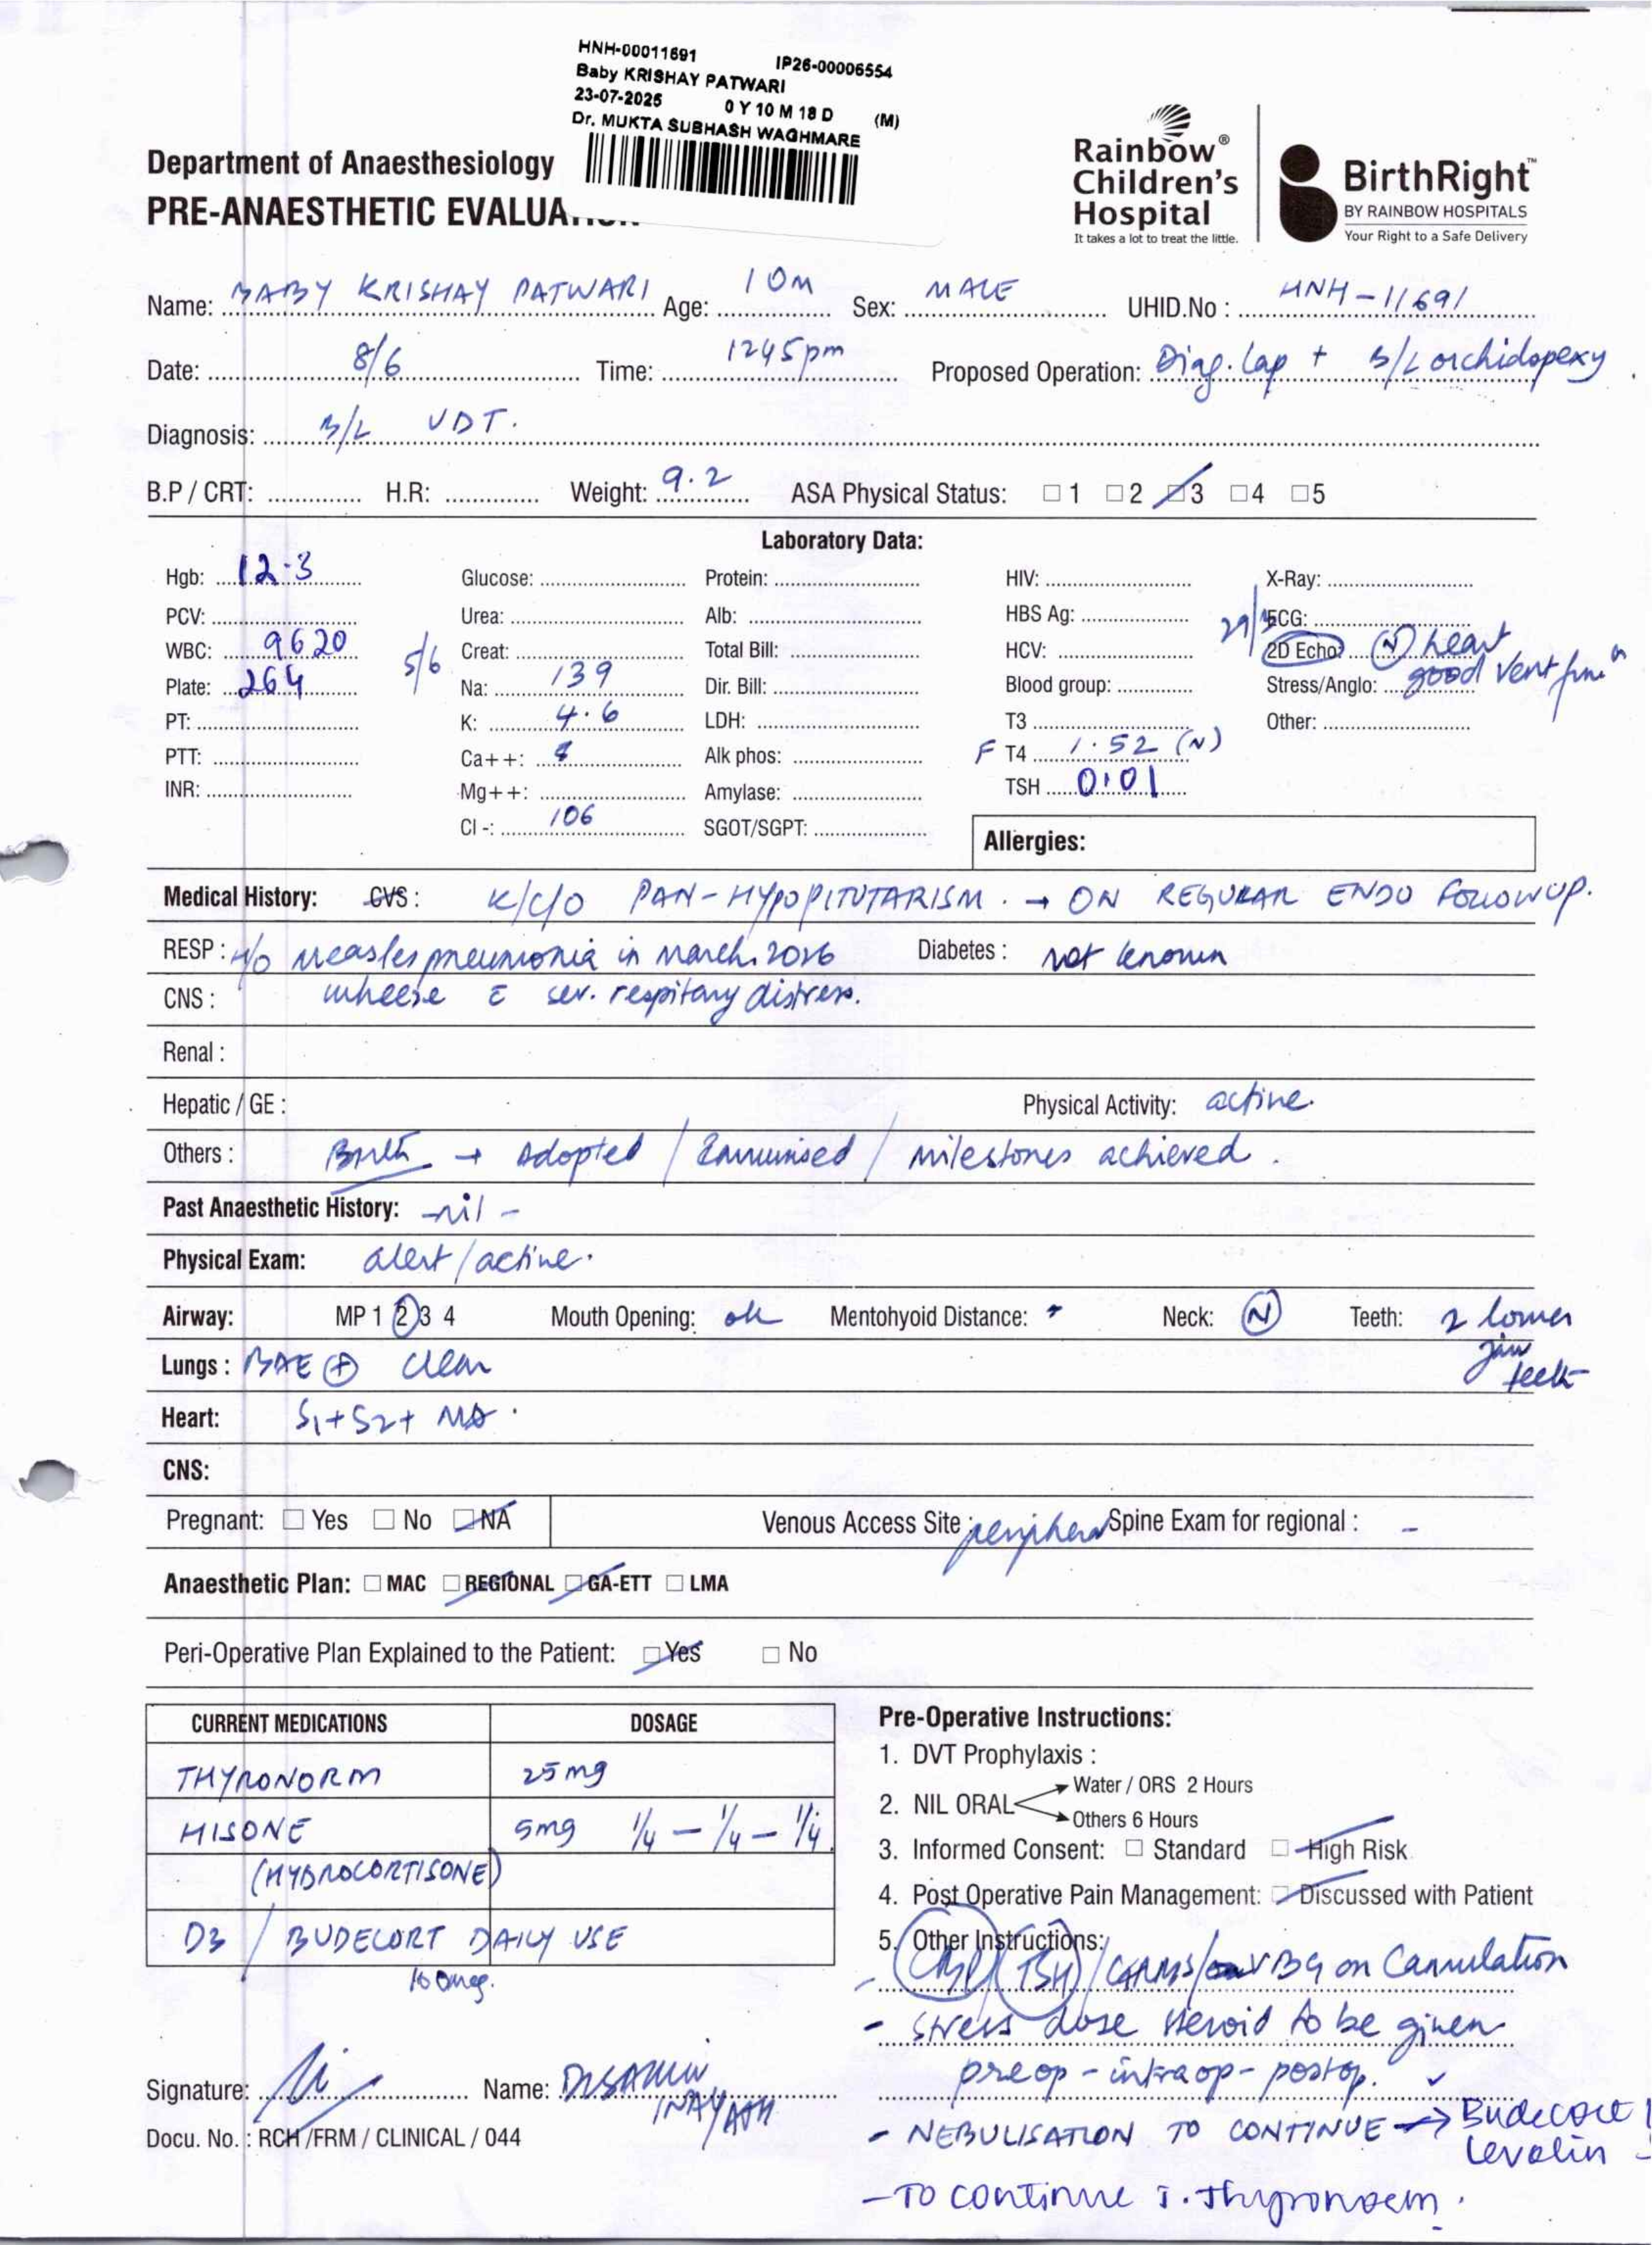 HNH-00011691 IP26-00006554
Baby KRISHAY PATWARI
23-07-2025 0 Y 10 M 18 D (M)
Dr. MUKTA SUBHASH WAGHMARE
Department of Anaesthesiology
PRE-ANAESTHETIC EVALUA
Rainbow® Children's Hospital
It takes a lot to treat the little.
BirthRight™
BY RAINBOW HOSPITALS
Your Right to a Safe Delivery
Name: BABY KRISHAY PATWARI Age: 10m Sex: MALE UHID.No : HNH-11691
Date: 8/6 Time: 1245pm Proposed Operation: Diag. Lap + B/L orchidopexy
Diagnosis: B/L UDT.
B.P / CRT: H.R: Weight: 9.2 ASA Physical Status: □ 1 □ 2 □ 3 □ 4 □ 5
Laboratory Data:
Hgb: 12.3 Glucose: Protein: HIV: X-Ray:
PCV: Urea: Alb: HBS Ag: ECG:
WBC: 9620 5/6 Creat: Total Bill: HCV: 2D Echo: (N) heart
Plate: 264 Na: 139 Dir. Bill: Blood group: Stress/Anglo: good vent fun n
PT: K: 4.6 LDH: T3 Other:
PTT: Ca++: Alk phos: F T4 1.52 (N)
INR: Mg++: Amylase: TSH 0.01
Cl -: 106 SGOT/SGPT: Allergies:
Medical History: CVS : K/C/O PAN-HYPOPITUTARISM. → ON REGULAR ENDO FOLLOWUP.
RESP : H/O Measles pneumonia in March. 2026 Diabetes : not known
CNS : wheeze c sev. respitary distress.
Renal :
Hepatic / GE : Physical Activity: active.
Others : Birth → Adopted / Immunised / milestones achieved.
Past Anaesthetic History: -nil -
Physical Exam: alert/active.
Airway: MP 1 2 3 4 Mouth Opening: ok Mentohyoid Distance: Neck: (N) Teeth: 2 lower jaw teeth
Lungs : BAE ⊕ clear
Heart: S1+S2+
CNS:
Pregnant: □ Yes □ No □ NA Venous Access Site : peripheral Spine Exam for regional : -
Anaesthetic Plan: □ MAC □ REGIONAL □ GA-ETT □ LMA
Peri-Operative Plan Explained to the Patient: □ Yes □ No
CURRENT MEDICATIONS DOSAGE
THYRONORM 25mg
HISONE 5mg 1/4 - 1/4 - 1/4
(HYDROCORTISONE)
D3 / BUDECORT DAILY USE
100mcg.
Pre-Operative Instructions:
1. DVT Prophylaxis :
2. NIL ORAL Water / ORS 2 Hours
Others 6 Hours
3. Informed Consent: □ Standard □ High Risk
4. Post Operative Pain Management: □ Discussed with Patient
5. Other Instructions:
TSH / VBG on Cannulation
- Stress dose steroid to be given
preop - intraop - postop.
- NEBULISATION TO CONTINUE → Budecort
Levolin
- To continue T. Thyronorm.
Signature: Name:
Docu. No. : RCH /FRM / CLINICAL / 044